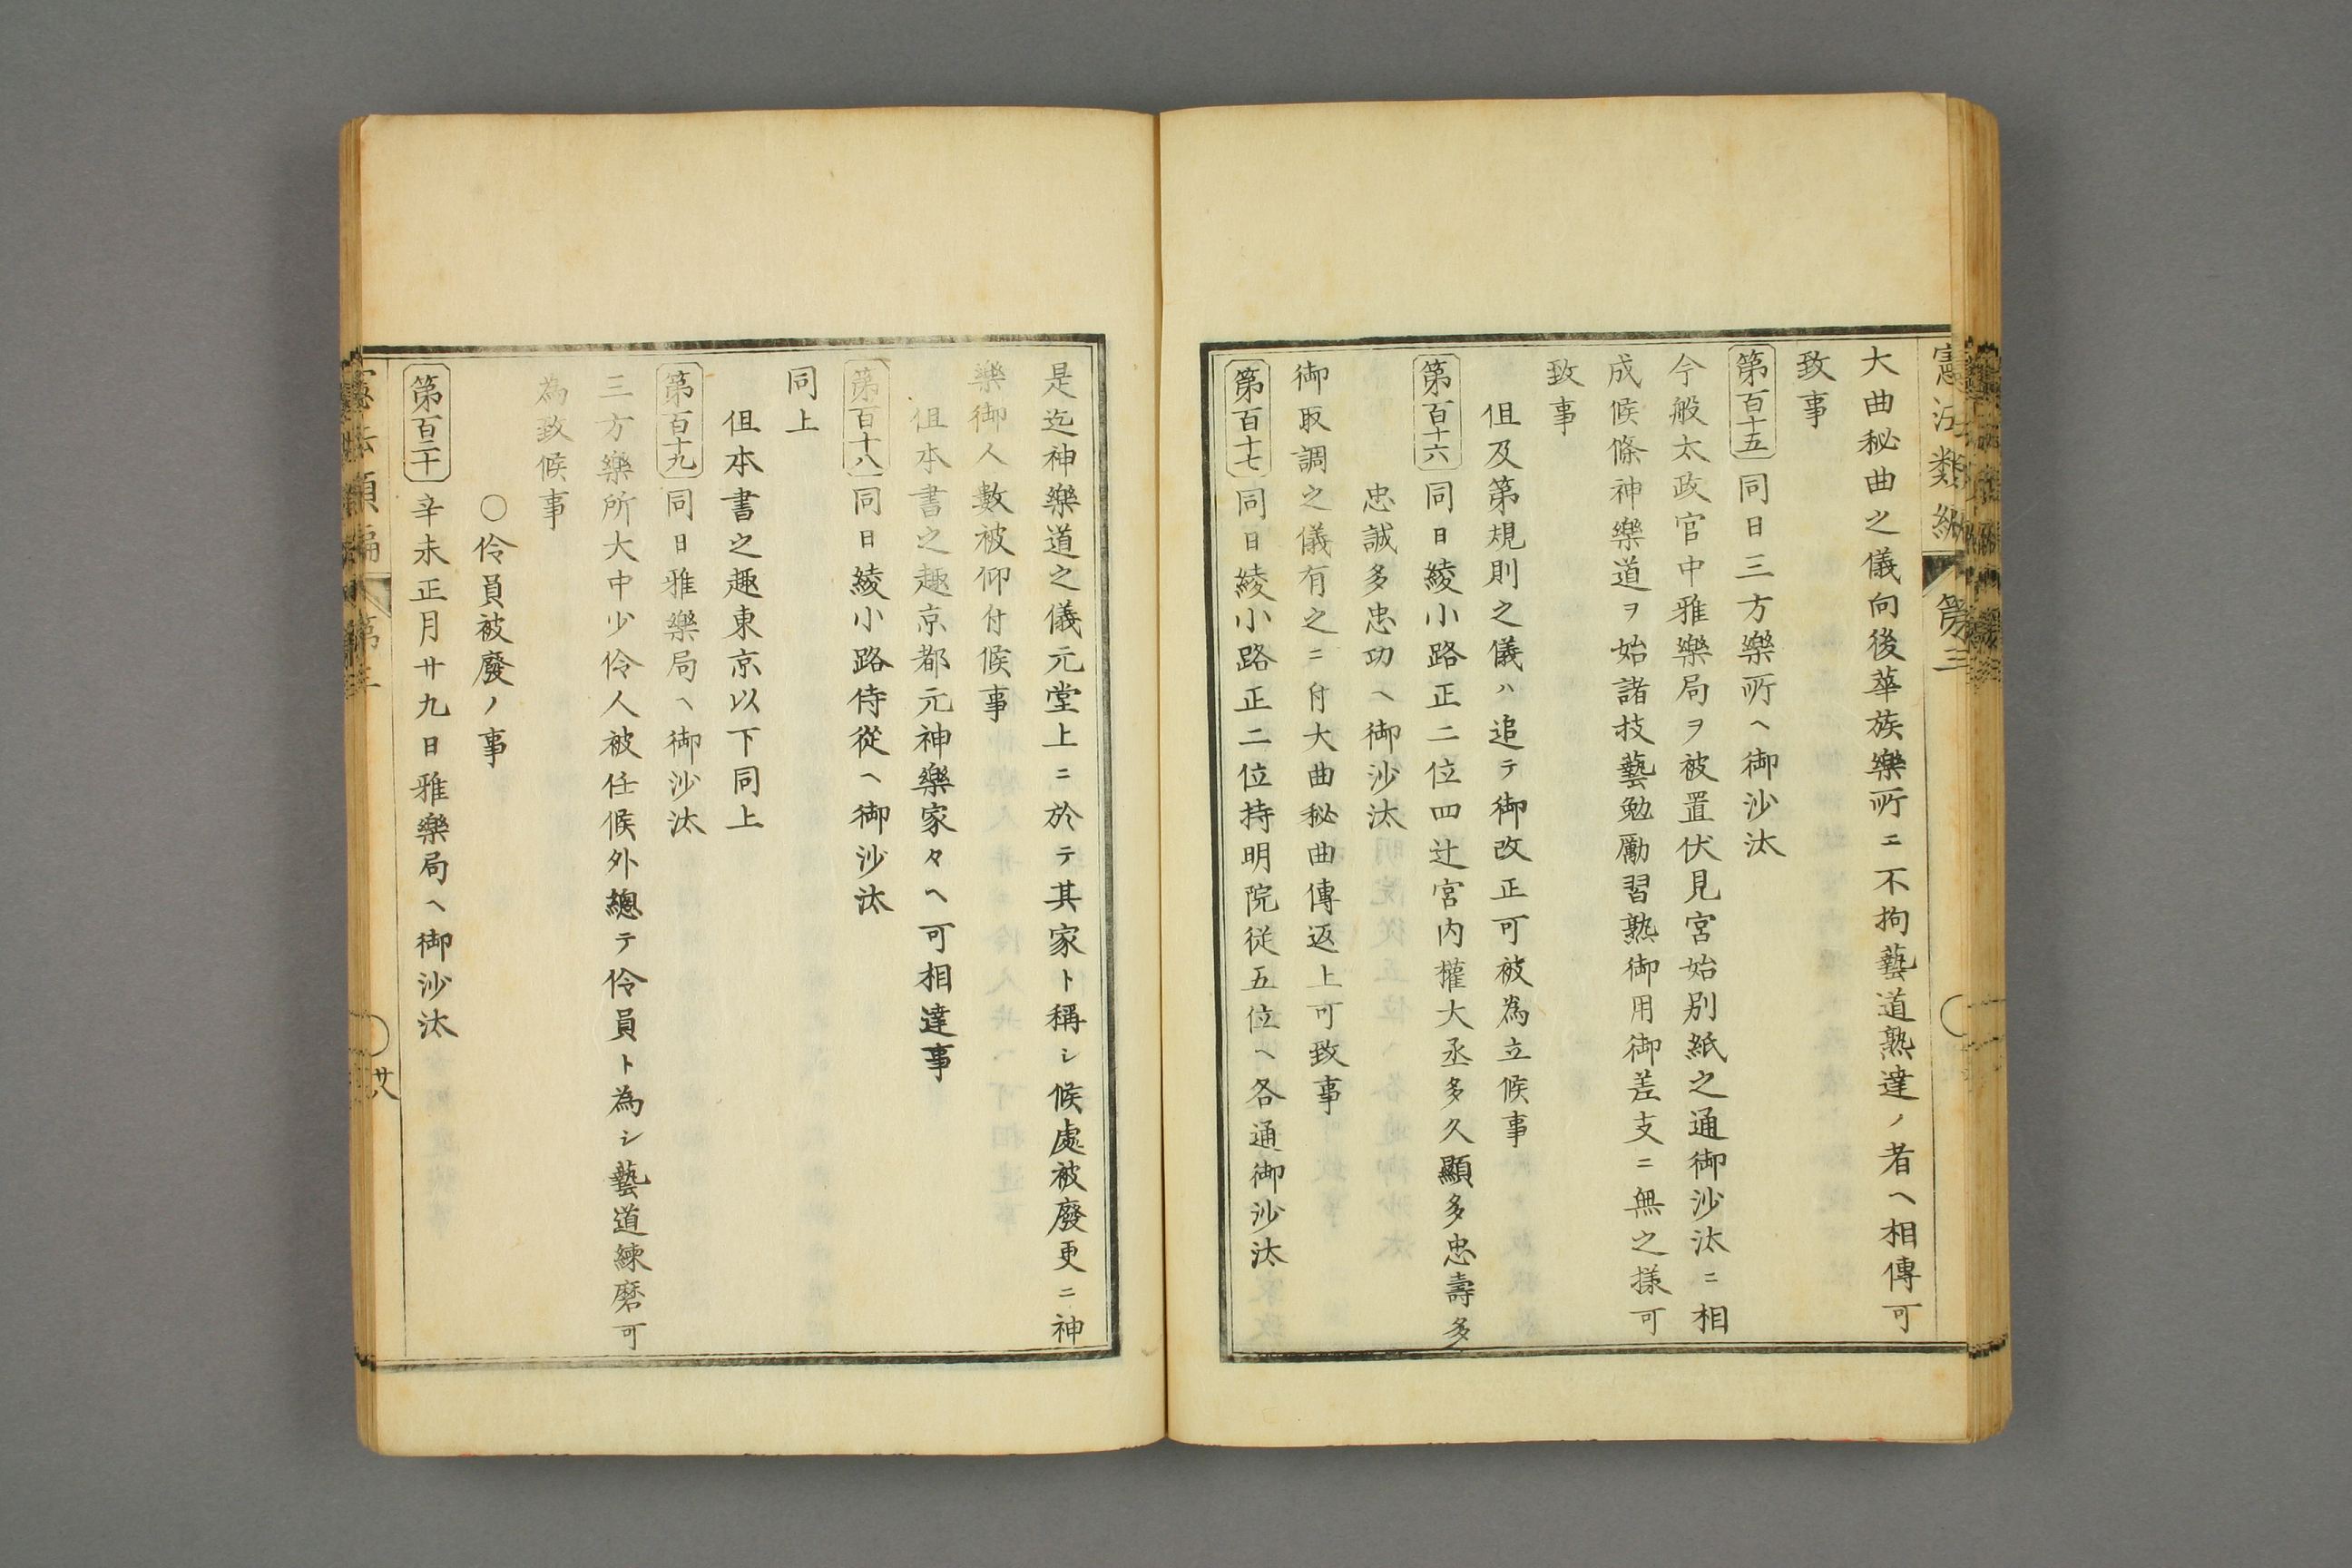 憲法類編 第三
大曲秘曲之儀向後華族樂所ニ不拘藝道熟達ノ者ヘ相傳可
致事
第百十五 同日三方樂所ヘ御沙汰
今般太政官中雅樂局ヲ被置伏見宮始別紙之通御沙汰ニ相
成候條神樂道ヲ始諸技藝勉勵習熟御用御差支ニ無之様可
致事
但及第規則之儀ハ追テ御改正可被為立候事
第百十六 同日綾小路正二位四辻宮内權大丞多久顯多忠壽多
忠誠多忠功ヘ御沙汰
御取調之儀有之ニ付大曲秘曲傳返上可致事
第百十七 同日綾小路正二位持明院従五位ヘ各通御沙汰
是迄神樂道之儀元堂上ニ於テ其家ト稱シ候處被廢更ニ神
樂御人數被仰付候事
但本書之趣京都元神樂家々ヘ可相達事
第百十八 同日綾小路侍從ヘ御沙汰
同上
但本書之趣東京以下同上
第百十九 同日雅樂局ヘ御沙汰
三方樂所大中少伶人被任候外總テ伶員ト為シ藝道練磨可
為致候事
〇伶員被廢ノ事
第百二十 辛未正月廿九日雅樂局ヘ御沙汰
憲法類編 第三 廿八